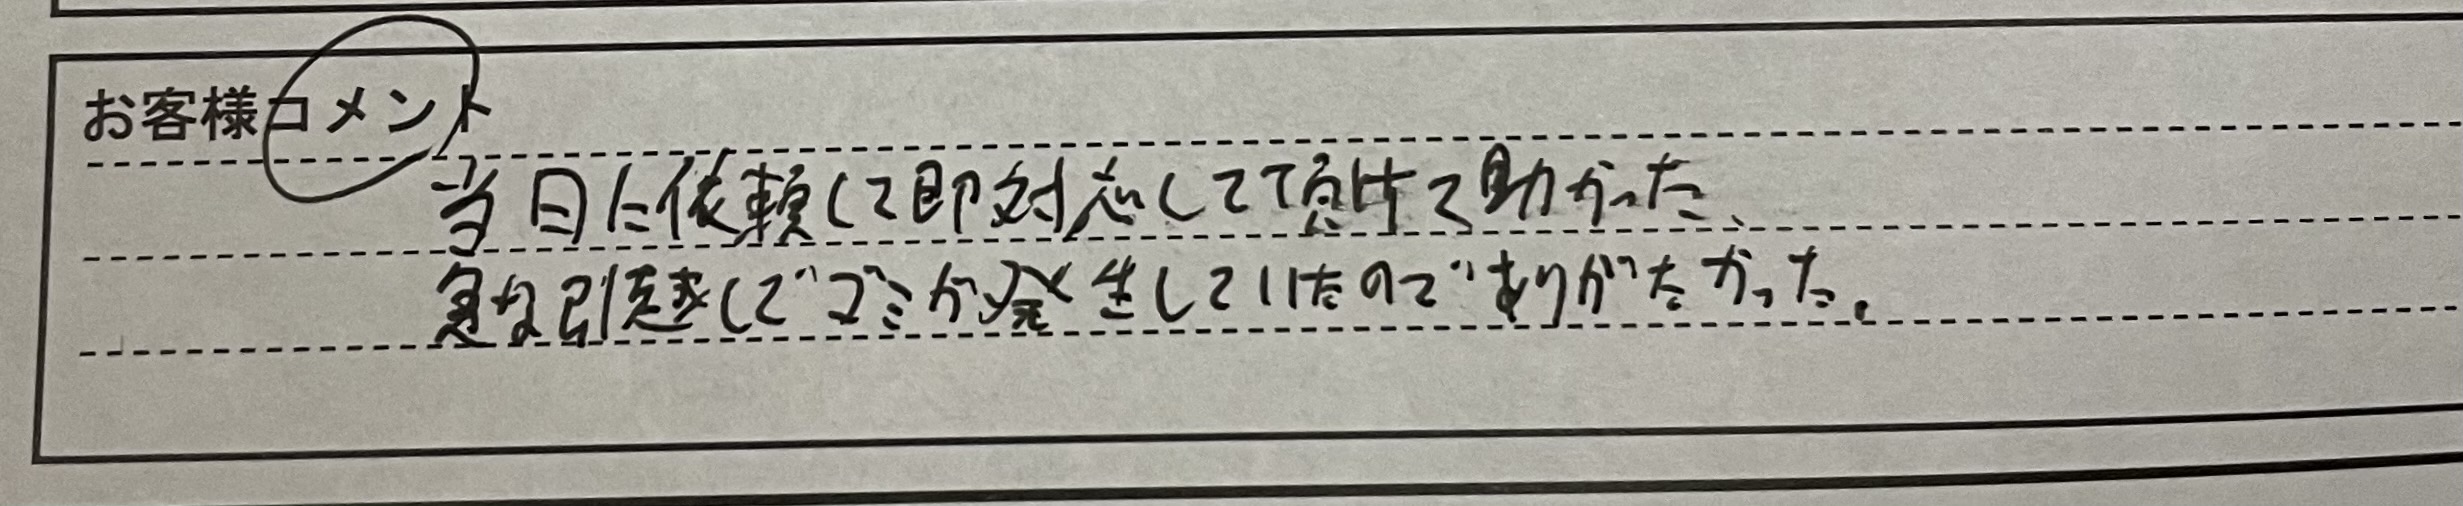 お客様コメント
当日に依頼して即対応して頂けて助かった、
急な引越しでゴミが発生していたのでありがたかった。